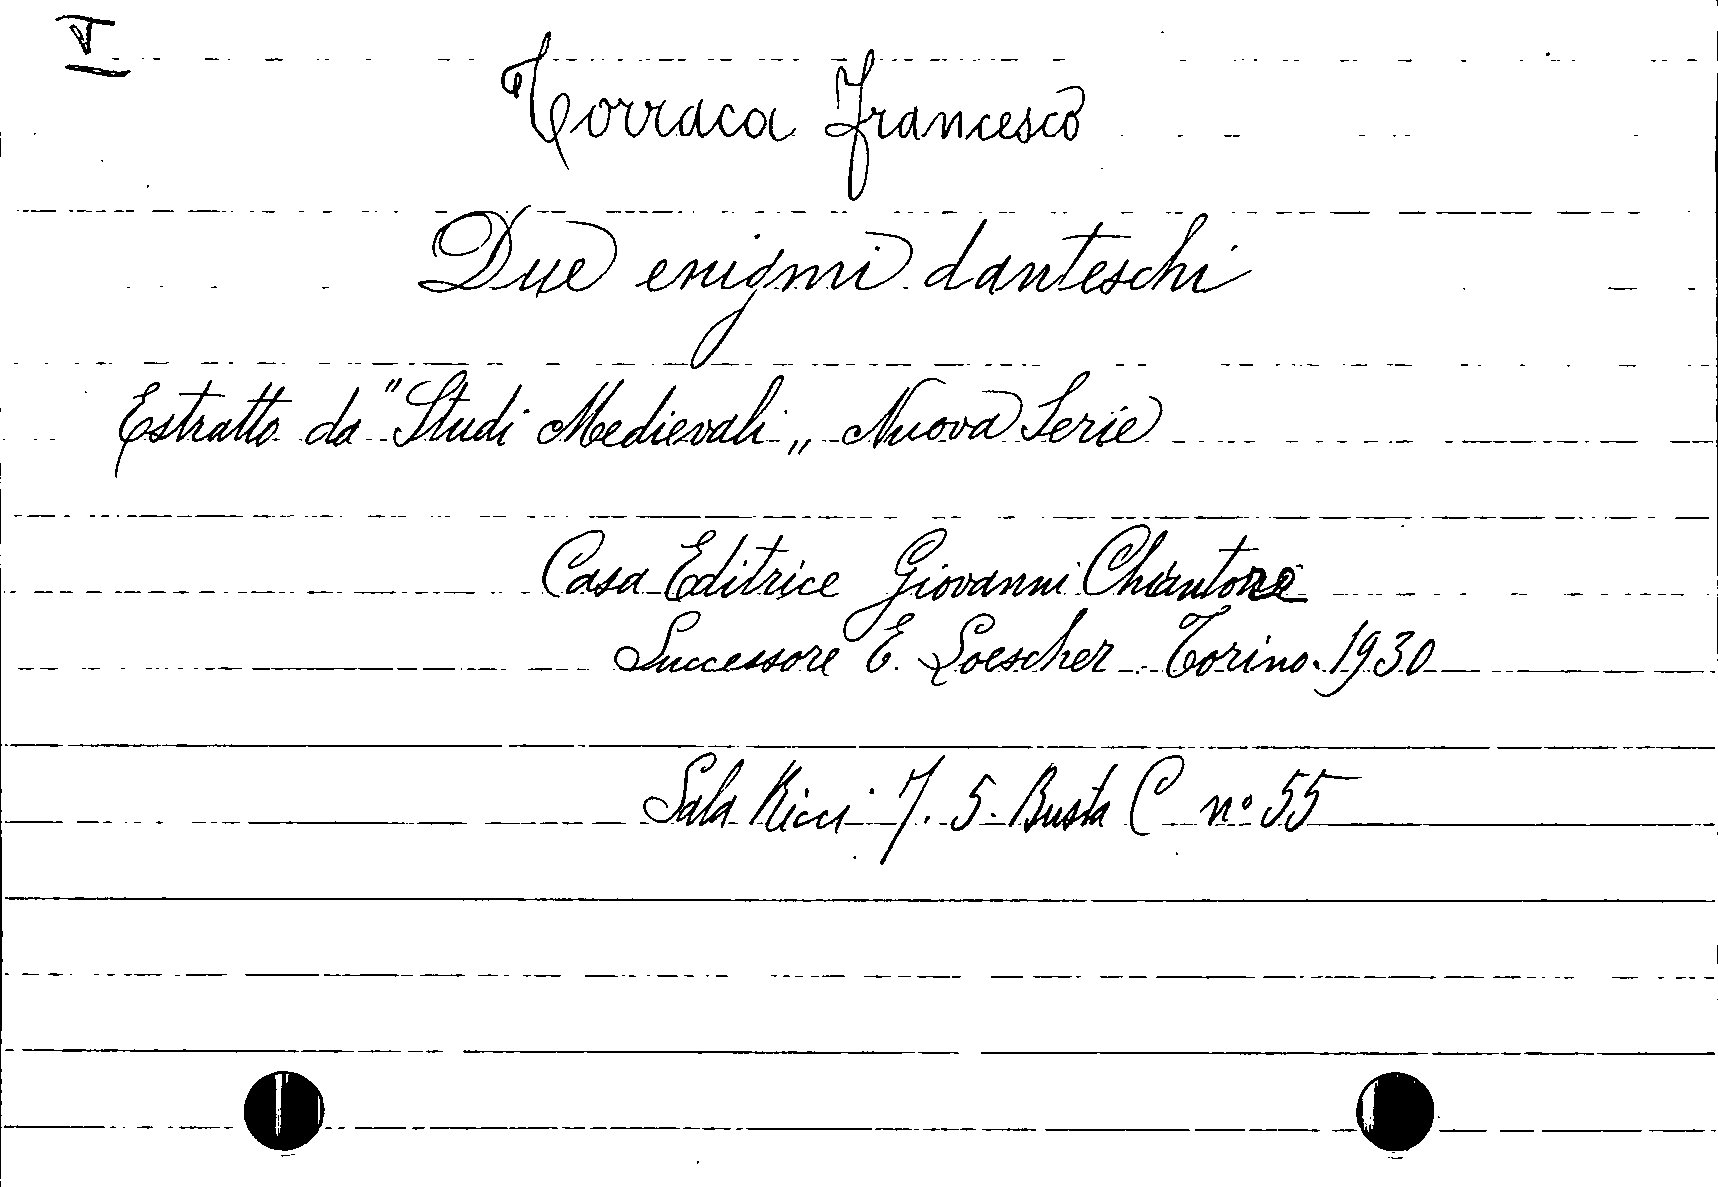 V
Torraca Francesco
Due enigmi danteschi
Estratto da "Studi Medievali„ Nuova Serie
Casa Editrice Giovanni Chiantore
Successore E. Loescher. Torino. 1930
Sala Ricci 7. 5. Busta C nº 55